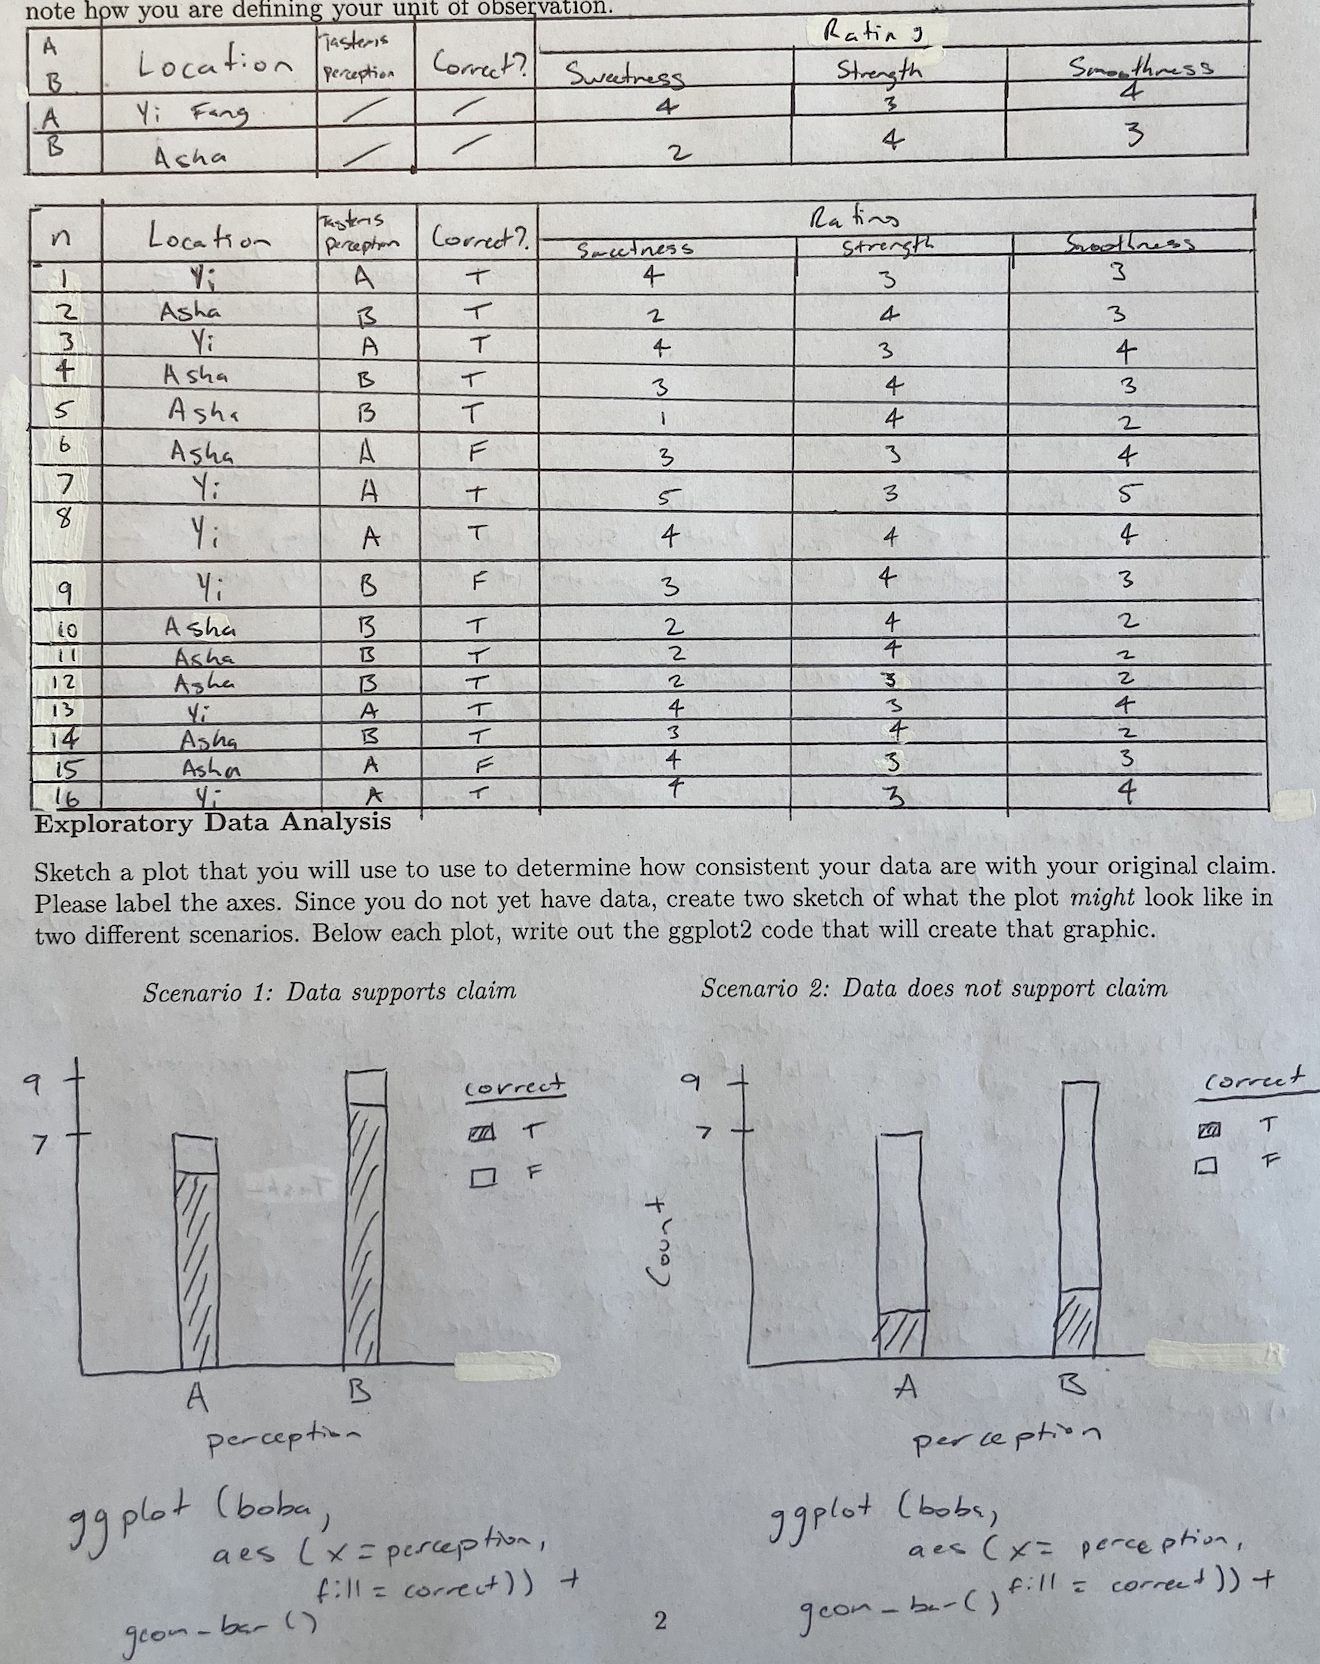 note how you are defining your unit of observation.
A B Location Taster's perception Correct? Rating
Sweetness Strength Smoothness
A Yi Fang / / 4 3 4
B Asha / / 2 4 3
n Location Taster's perception Correct? Rating
Sweetness Strength Smoothness
1 Yi A T 4 3 3
2 Asha B T 2 4 3
3 Yi A T 4 3 4
4 Asha B T 3 4 3
5 Asha B T 1 4 2
6 Asha A F 3 3 4
7 Yi A T 5 3 5
8 Yi A T 4 4 4
9 Yi B F 3 4 3
10 Asha B T 2 4 2
11 Asha B T 2 4 2
12 Asha B T 2 3 2
13 Yi A T 4 3 4
14 Asha B T 3 4 2
15 Asha A F 4 3 3
16 Yi A T 4 3 4
Exploratory Data Analysis
Sketch a plot that you will use to use to determine how consistent your data are with your original claim.
Please label the axes. Since you do not yet have data, create two sketch of what the plot might look like in
two different scenarios. Below each plot, write out the ggplot2 code that will create that graphic.
Scenario 1: Data supports claim
9
7
correct
T
F
A B
perception
ggplot (boba,
aes (x = perception,
fill = correct)) +
geom_bar ()
Scenario 2: Data does not support claim
9
7
Count
correct
T
F
A B
perception
ggplot (boba,
aes (x = perception,
fill = correct)) +
geom_bar ()
2